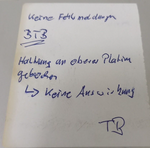 Keine Fehlermeldungen
BTB
Halterung an oberer Platine
gebrochen
↳ Keine Auswirkung
TB